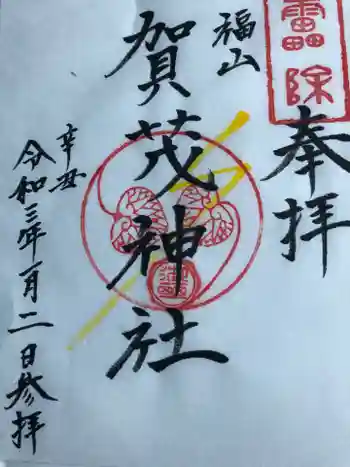 奉拝
雷除
福山
賀茂神社
辛丑
令和三年一月二日参拝